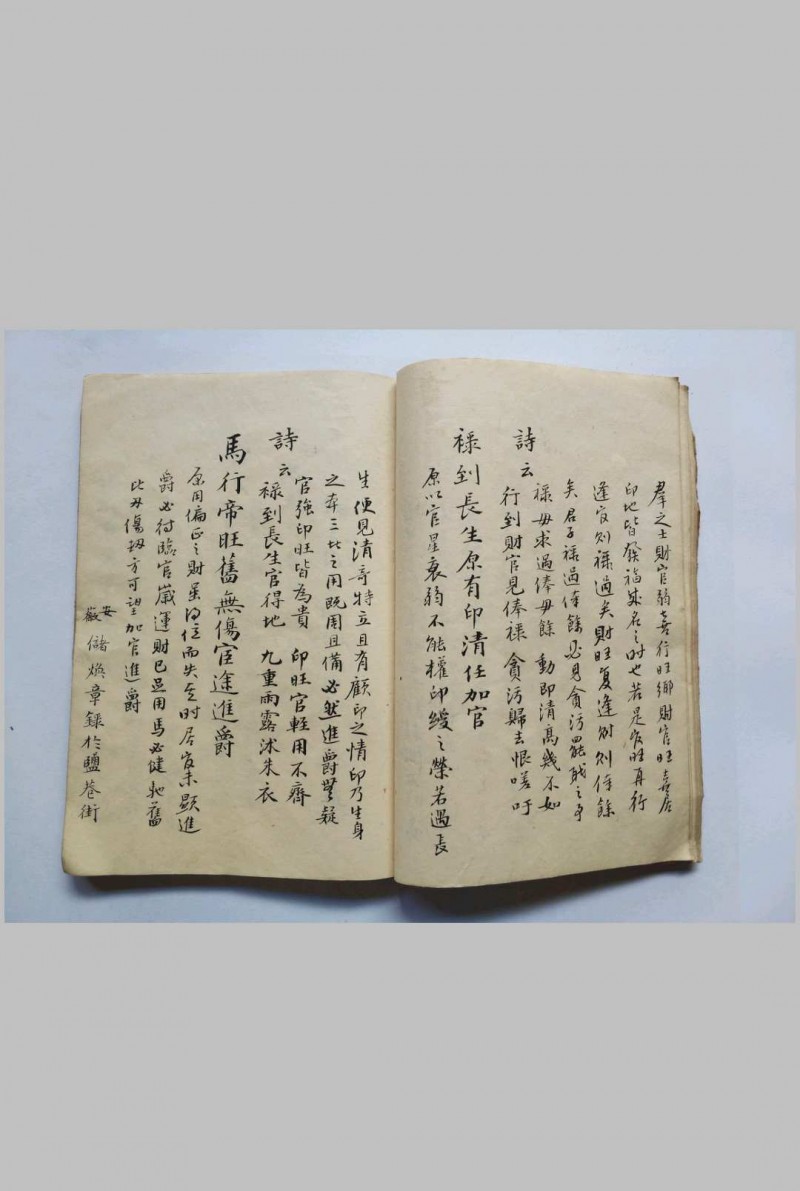 羣之士財官弱喜行旺鄉財官旺喜居
印地皆發福成名之時也若是官旺再行
逢官則禄過矣財旺复逢財則俸餘
矣君子禄過俸餘必見貪污罷職之事
禄毋求過俸毋餘　動即清高幾不如
詩云
行到財官見俸禄　貪污歸去恨嗟吁
禄到長生原有印清任加官
原以官星衰弱不能權印綬之榮若遇長
生便見清奇特立且有顧印之情印乃生身
之本三比之用既周且備必然進爵無疑
官強印旺皆為貴　印旺官輕用不齊
詩云
禄到長生官得地　九重雨露沭朱衣
馬行帝旺舊無傷宦途進爵
原用偏正之財虽得位而失在时居官未顯進
爵必待臨官嵗運財已足用馬必健馳舊
比毋傷刼方可望加官進爵
安徽儲焕章録於鹽巷街